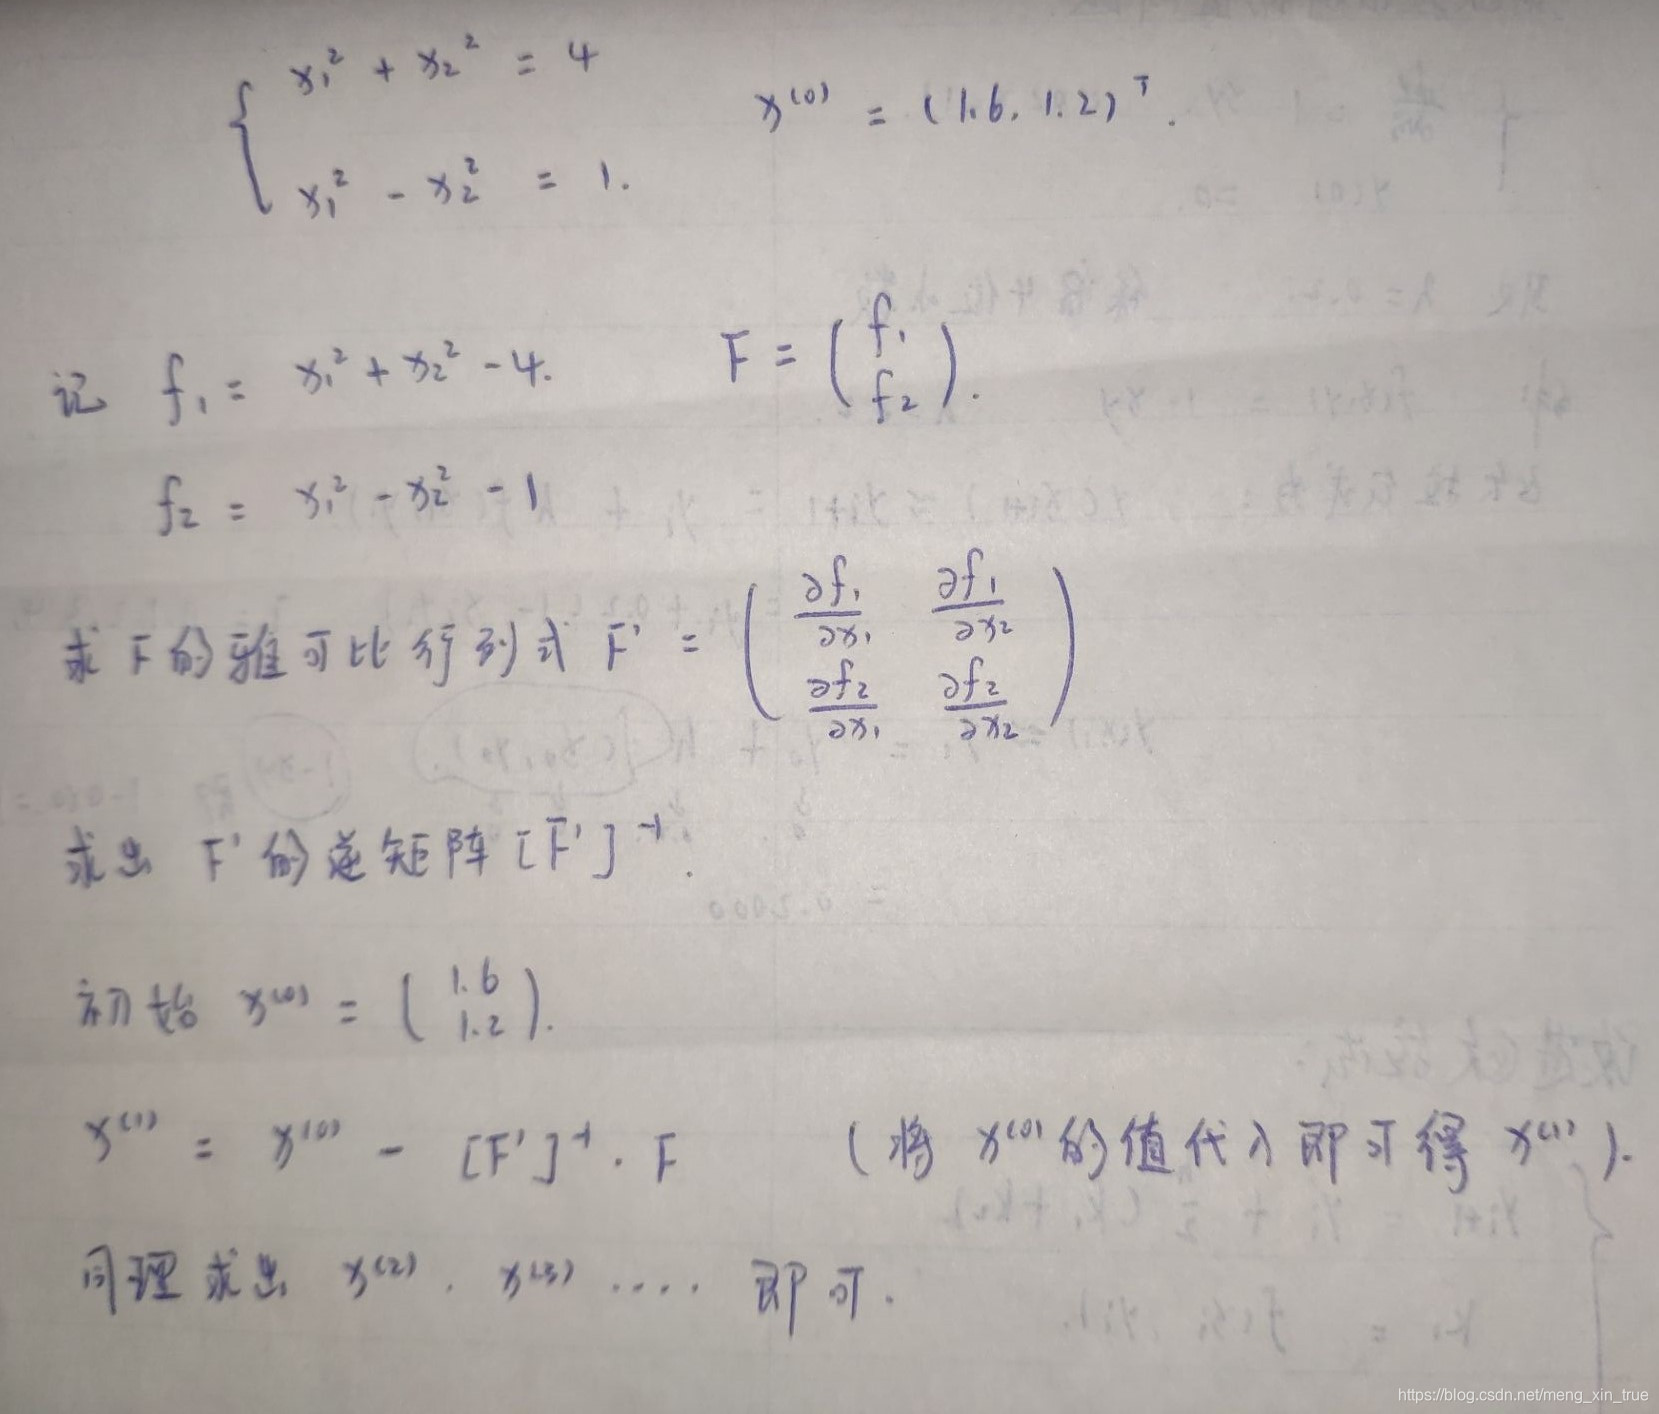 x₁² + x₂² = 4
x⁽⁰⁾ = (1.6, 1.2)ᵀ.
x₁² - x₂² = 1.
记 f₁ = x₁² + x₂² - 4. F = (f₁ f₂).
f₂ = x₁² - x₂² - 1
求 F 的雅可比行列式 F' = (∂f₁/∂x₁ ∂f₁/∂x₂
∂f₂/∂x₁ ∂f₂/∂x₂)
求出 F' 的逆矩阵 [F']⁻¹.
初始 x⁽⁰⁾ = (1.6 1.2).
x⁽¹⁾ = x⁽⁰⁾ - [F']⁻¹ · F (将 x⁽⁰⁾ 的值代入即可得 x⁽¹⁾).
同理求出 x⁽²⁾. x⁽³⁾ .... 即可.
https://blog.csdn.net/meng_xin_true